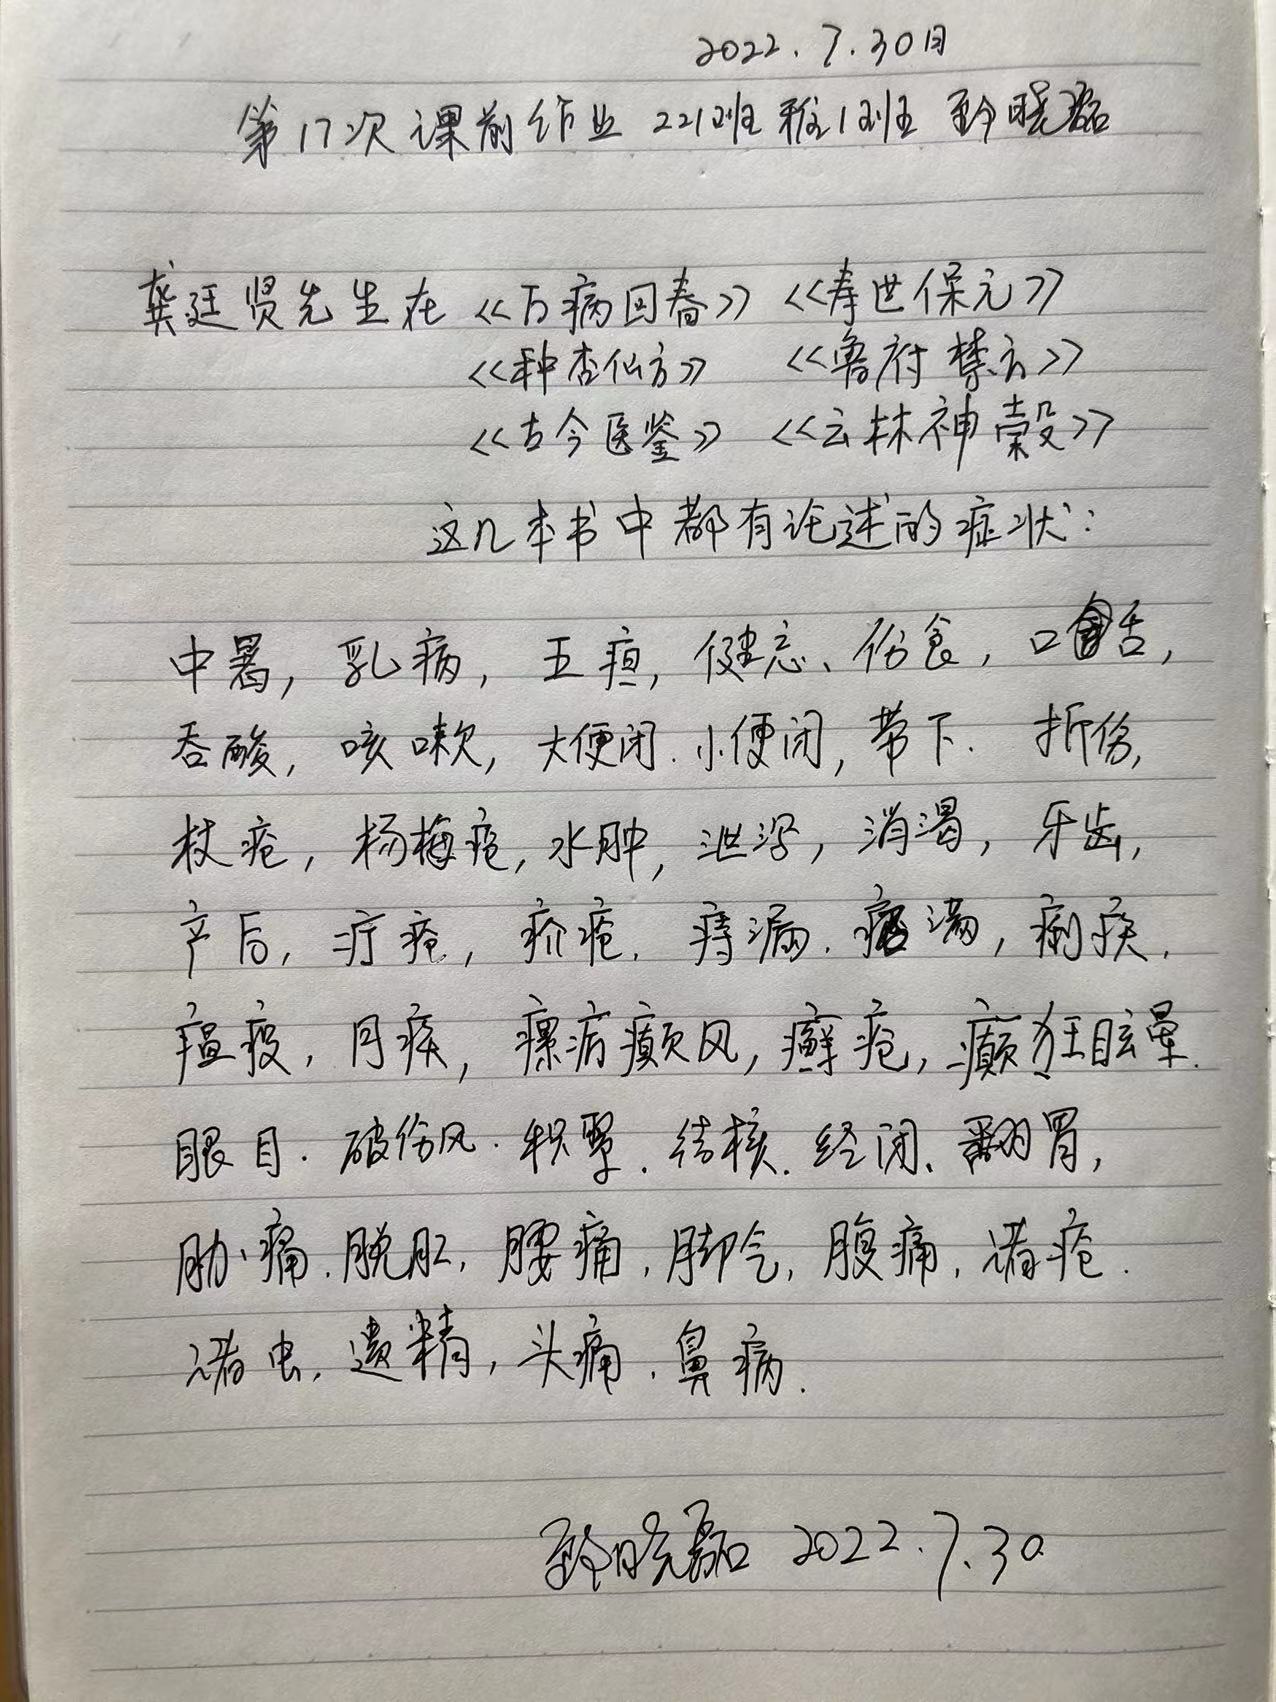 2022.7.30日
第17次课前作业 221班 雅1班 晓磊
龚廷贤先生在《万病回春》《寿世保元》
《种杏仙方》 《鲁府禁方》
《古今医鉴》 《云林神彀》
这几本书中都有论述的症状：
中暑，乳病，五疸，健忘、伤食，口舌，
吞酸，咳嗽，大便闭.小便闭，带下. 折伤，
杖疮，杨梅疮，水肿，泄泻，消渴，牙齿，
产后，疔疮，疥疮.痔漏.痞满，痢疾.
瘟疫，疾，癫风，癣疮，癫狂眩晕.
眼目.破伤风.积聚.结核.经闭、翻胃，
胁痛.脱肛，腰痛，脚气，腹痛，诸疮.
诸虫.遗精，头痛.鼻病.
晓磊 2022.7.30